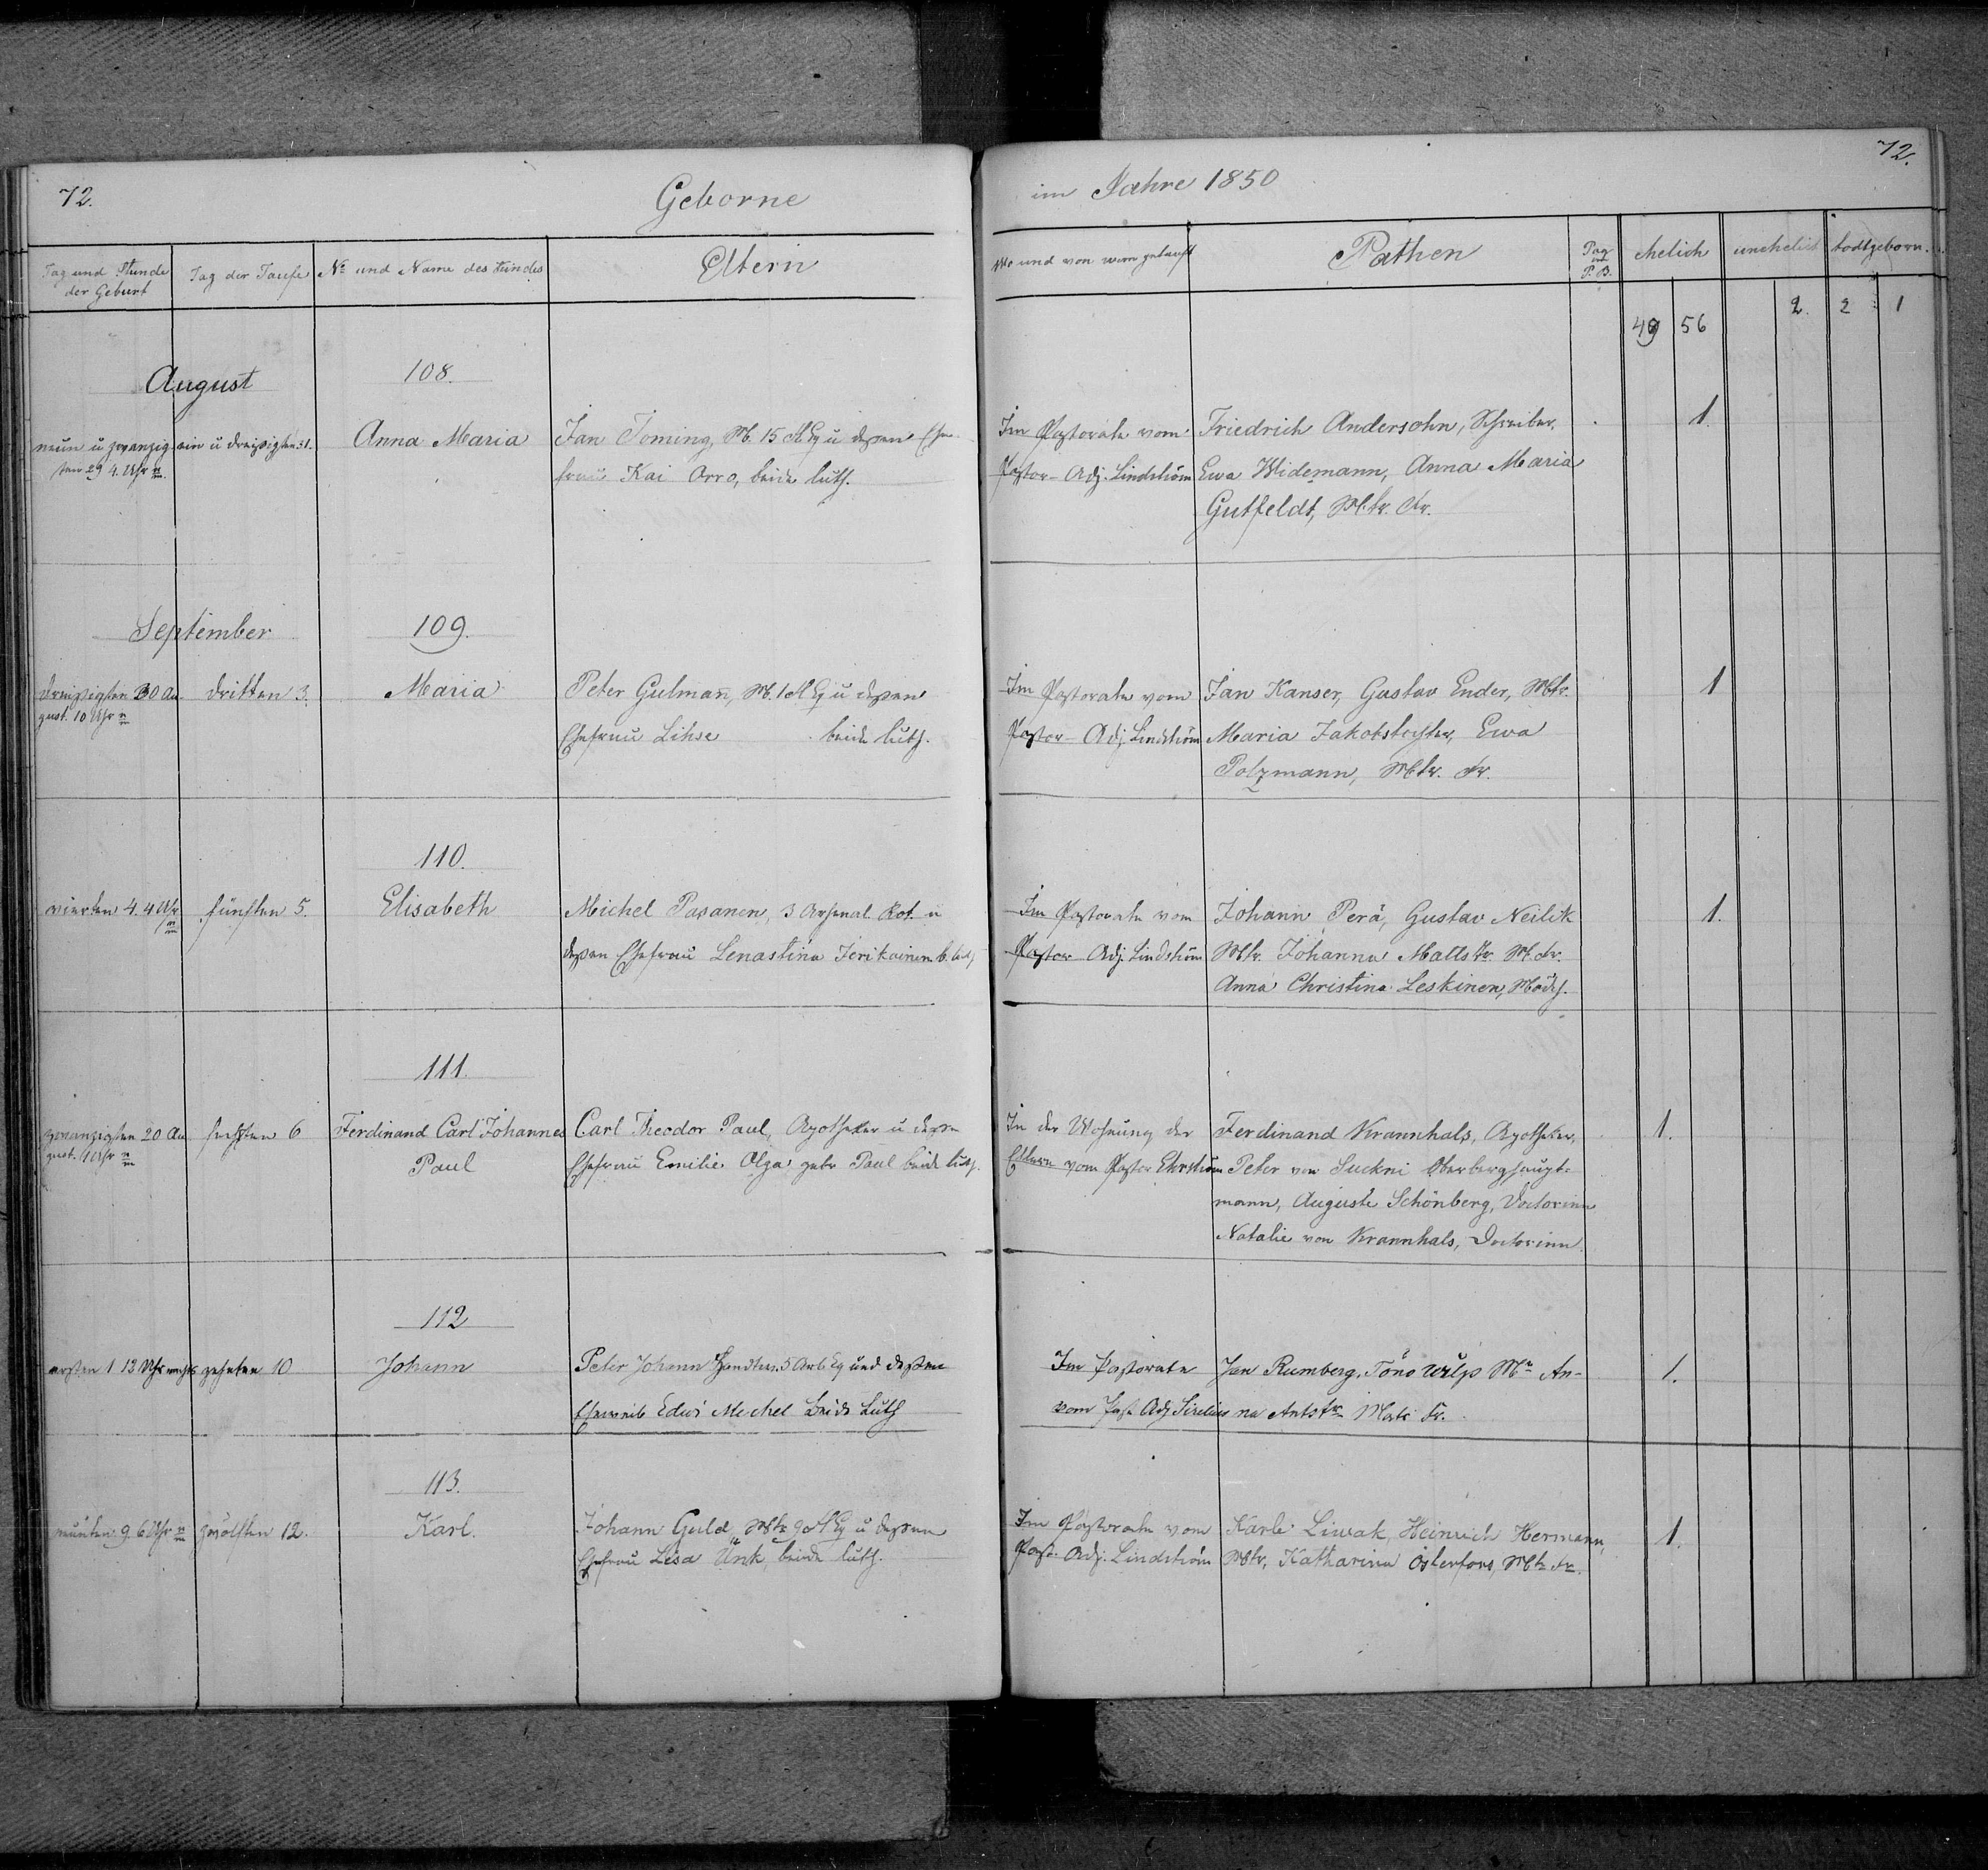 72.
Geborne
im Jahre 1850
72.
Tag und Stunde der Geburt
Tag der Taufe
No und Name des Kindes
Eltern
Wo und von wem getauft
Pathen
Pag P.B.
ehelich
unehelich
todtgeborn.
49 56 2. 2 1
August
108.
neun u zwanzig
sten 29 4. Uhr n
ein u dreißigsten 31.
Anna Maria
Jan Toming, M. 15 Eq u deßen Ehe
frau Kai Orro, beide luth.
Im Pastorate vom
Pastor-Adj. Lindström
Friedrich Andersohn, Schreiber,
Ewa Widemann, Anna Maria
Gutfeldt, M.tr. Fr.
1.
September
109.
dreißigsten 30 Au-
gust. 10 Uhr n
dritten 3.
Maria
Peter Gulmañ, M. 1 Eq u deßen
Ehefrau Lihse beide luth.
Im Pastorate vom
Pastor-Adj. Lindström
Jan Kanser, Gustav Ender, Mtr.
Maria Jakobstochter, Ewa
Polzmann, Mtr. Fr.
1
110.
vierten 4. 4 Uhr
fünften 5.
Elisabeth
Michel Pasanen, 3 Arsenal. Rot. u
deßen Ehefrau Lenastina Jerikainen b. luth
Im Pastorate vom
Pastor Adj. Lindström
Johann Perä, Gustav Neilik
Mtr. Johanna Matts tr. M. Fr.
Anna Christina Leskinen, Mädch.
1.
111.
zwanzigsten 20 Au
gust. 1 Uhr n
sechsten 6
Ferdinand Carl Johannes
Paul
Carl Theodor Paul, Apotheker u deßen
Ehefrau Emilie Olga gebr Paul beide luth.
In der Wohnung der
Eltern vom Pastor Ehrström
Ferdinand Krannhals, Apotheker,
Peter von Suckni Oberberghaupt-
mann, Auguste Schönberg, Doctorinn
Natalie von Krannhals, Doctorinn.
1.
112
ersten 1 12 Uhr nachts
zehnten 10
Johann
Peter Johann 5 Arb Eq und deßen
Eheweib Edwi Michel Beide Luth
Im Pastorate
vom Past Adj Sirelius
Jan Rumberg, Töno Wilps Mr An-
na Ants tr Mats Fr.
1.
113.
neunten 9. 6 Uhr n
zwölften 12.
Karl.
Johann Guld, Mtr 9 Eq u deßen
Ehefrau Lisa Unk, beide luth.
Im Pastorate vom
Past. Adj. Lindström
Karl Liwak, Heinrich Hermann,
Mtr, Katharina Osterfors, Mtr Fr.
1.